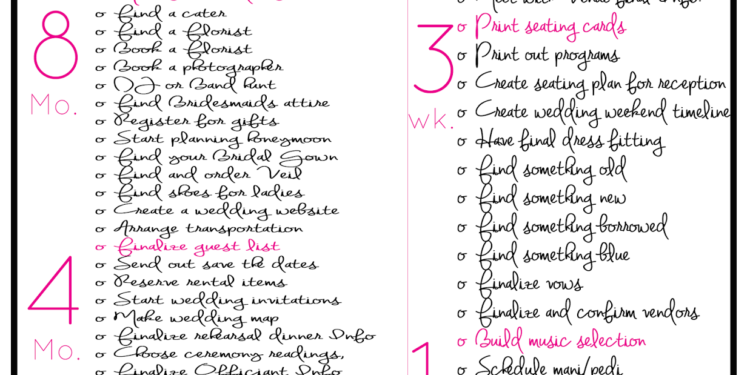 8
Mo.
Find a cater
Find a florist
Book a florist
Book a photographer
DJ or Band hunt
Find Bridesmaids attire
Register for gifts
Start planning honeymoon
Find your Bridal Gown
Find and order Veil
Find shoes for ladies
Create a wedding website
Arrange transportation
Finalize guest list
4
Mo.
Send out save the dates
Reserve rental items
Start wedding invitations
Make wedding map
Finalize rehearsal dinner Info
Choose ceremony readings,
Finalize Officiant Info
3
wk.
Print seating cards
Print out programs
Create seating plan for reception
Create wedding weekend timeline
Have final dress fitting
Find something old
Find something new
Find something borrowed
Find something blue
Finalize vows
Finalize and confirm vendors
Build music selection
1
Schedule mani/pedi